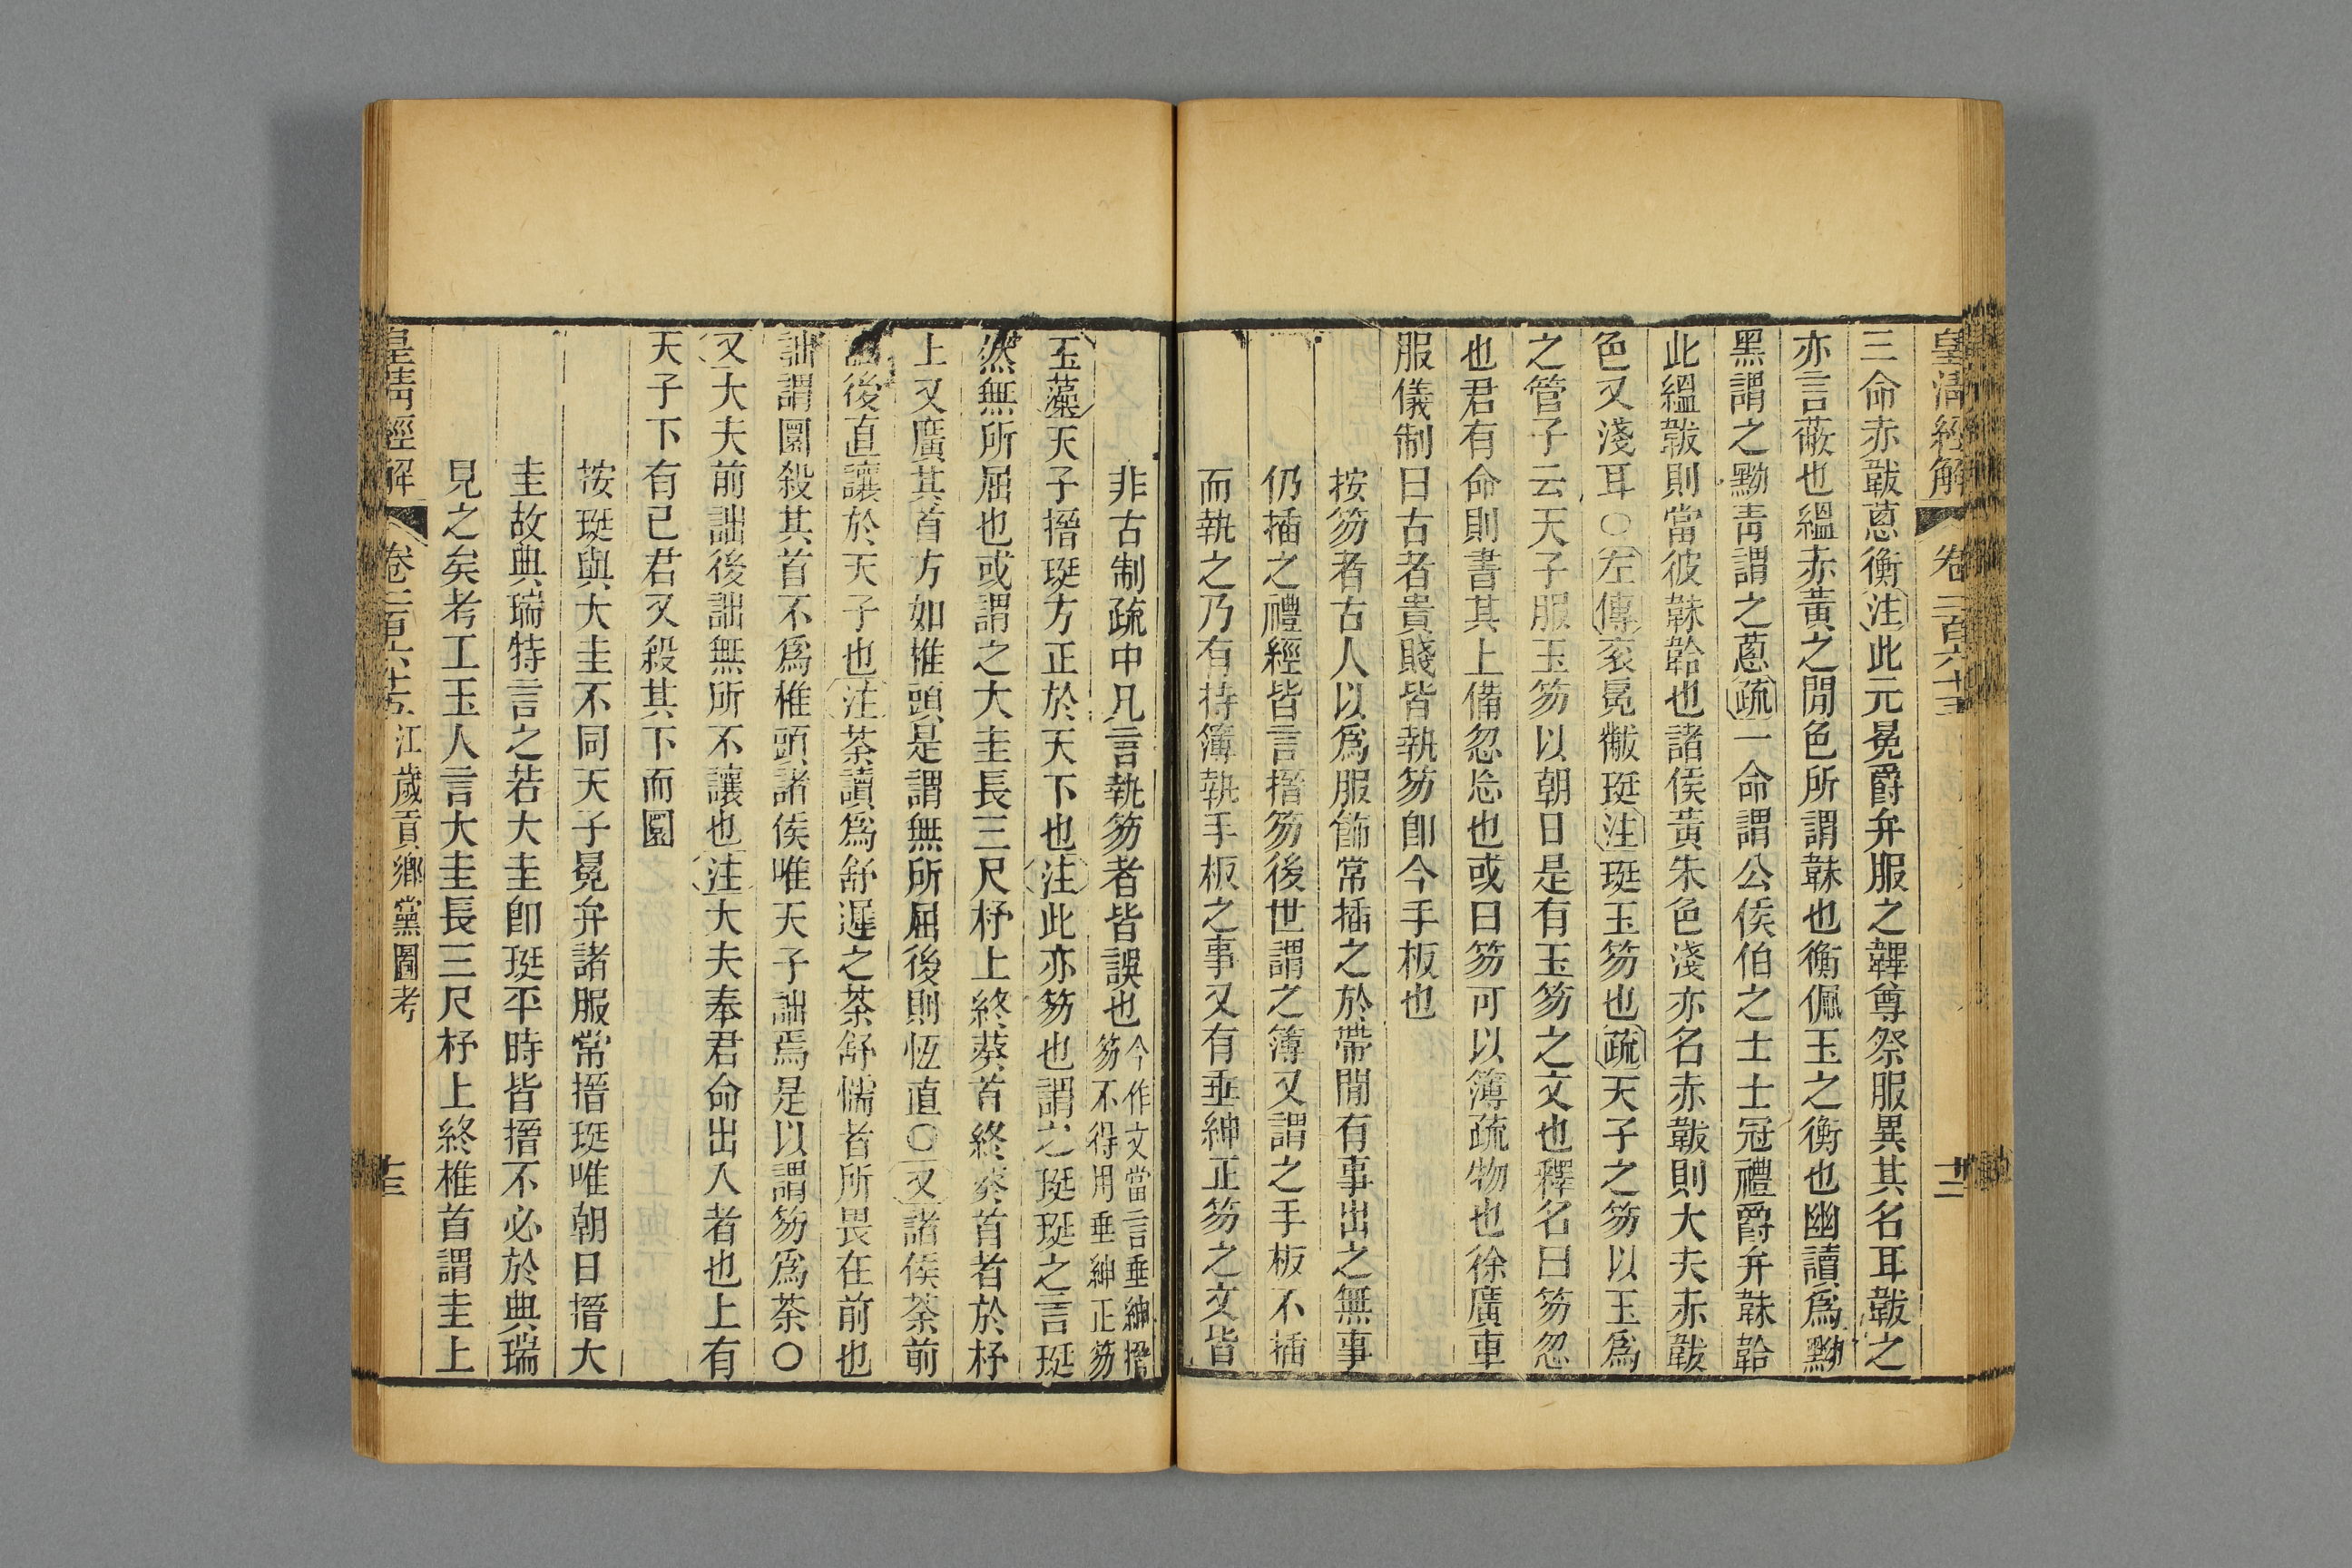 皇清經解 卷二百六十三 十二
三命赤韍蔥衡注此元冕爵弁服之韠尊祭服異其名耳韍之
亦言蔽也縕赤黃之閒色所謂韎也衡佩玉之衡也幽讀爲黝
黑謂之黝靑謂之蔥疏一命謂公侯伯之士士冠禮爵弁韎韐
此縕韍則當彼韎韐也諸侯黃朱色淺亦名赤韍則大夫赤韍
色又淺耳○左傳袞冕黻珽注珽玉笏也疏天子之笏以玉爲
之管子云天子服玉笏以朝日是有玉笏之文也釋名曰笏忽
也君有命則書其上備忽忘也或曰笏可以簿疏物也徐廣車
服儀制曰古者貴賤皆執笏卽今手板也
按笏者古人以爲服飾常插之於帶閒有事出之無事
仍插之禮經皆言搢笏後世謂之簿又謂之手板不插
而執之乃有持簿執手板之事又有垂紳正笏之文皆
非古制疏中凡言執笏者皆誤也今作文當言垂紳搢笏不得用垂紳正笏
玉藻天子搢珽方正於天下也注此亦笏也謂之珽珽之言珽
然無所屈也或謂之大圭長三尺杼上終葵首終葵首者於杼
上又廣其首方如椎頭是謂無所屈後則恆直○又諸侯荼前
詘後直讓於天子也注荼讀爲舒遲之荼舒懦者所畏在前也
詘謂圜殺其首不爲椎頭諸侯唯天子詘焉是以謂笏爲荼○
又大夫前詘後詘無所不讓也注大夫奉君命出入者也上有
天子下有已君又殺其下而圜
按珽與大圭不同天子冕弁諸服常搢珽唯朝日搢大
圭故典瑞特言之若大圭卽珽平時皆搢不必於典瑞
見之矣考工玉人言大圭長三尺杼上終椎首謂圭上
皇清經解 卷二百六十三 江歲貢鄉黨圖考 十三